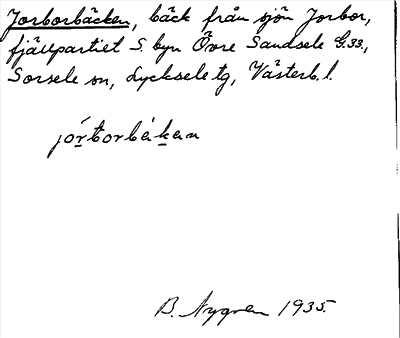 Jorborbäcken, bäck från sjön Jorbor,
fjällpartiet S. byn Övre Sandsele G.33.,
Sorsele sn, Lycksele tg, Västerb. l.
B. Nygren 1935.